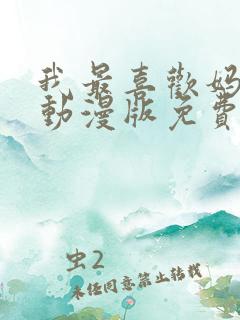 我最喜歡媽
動漫版免費
虫2
未经同意禁止转载